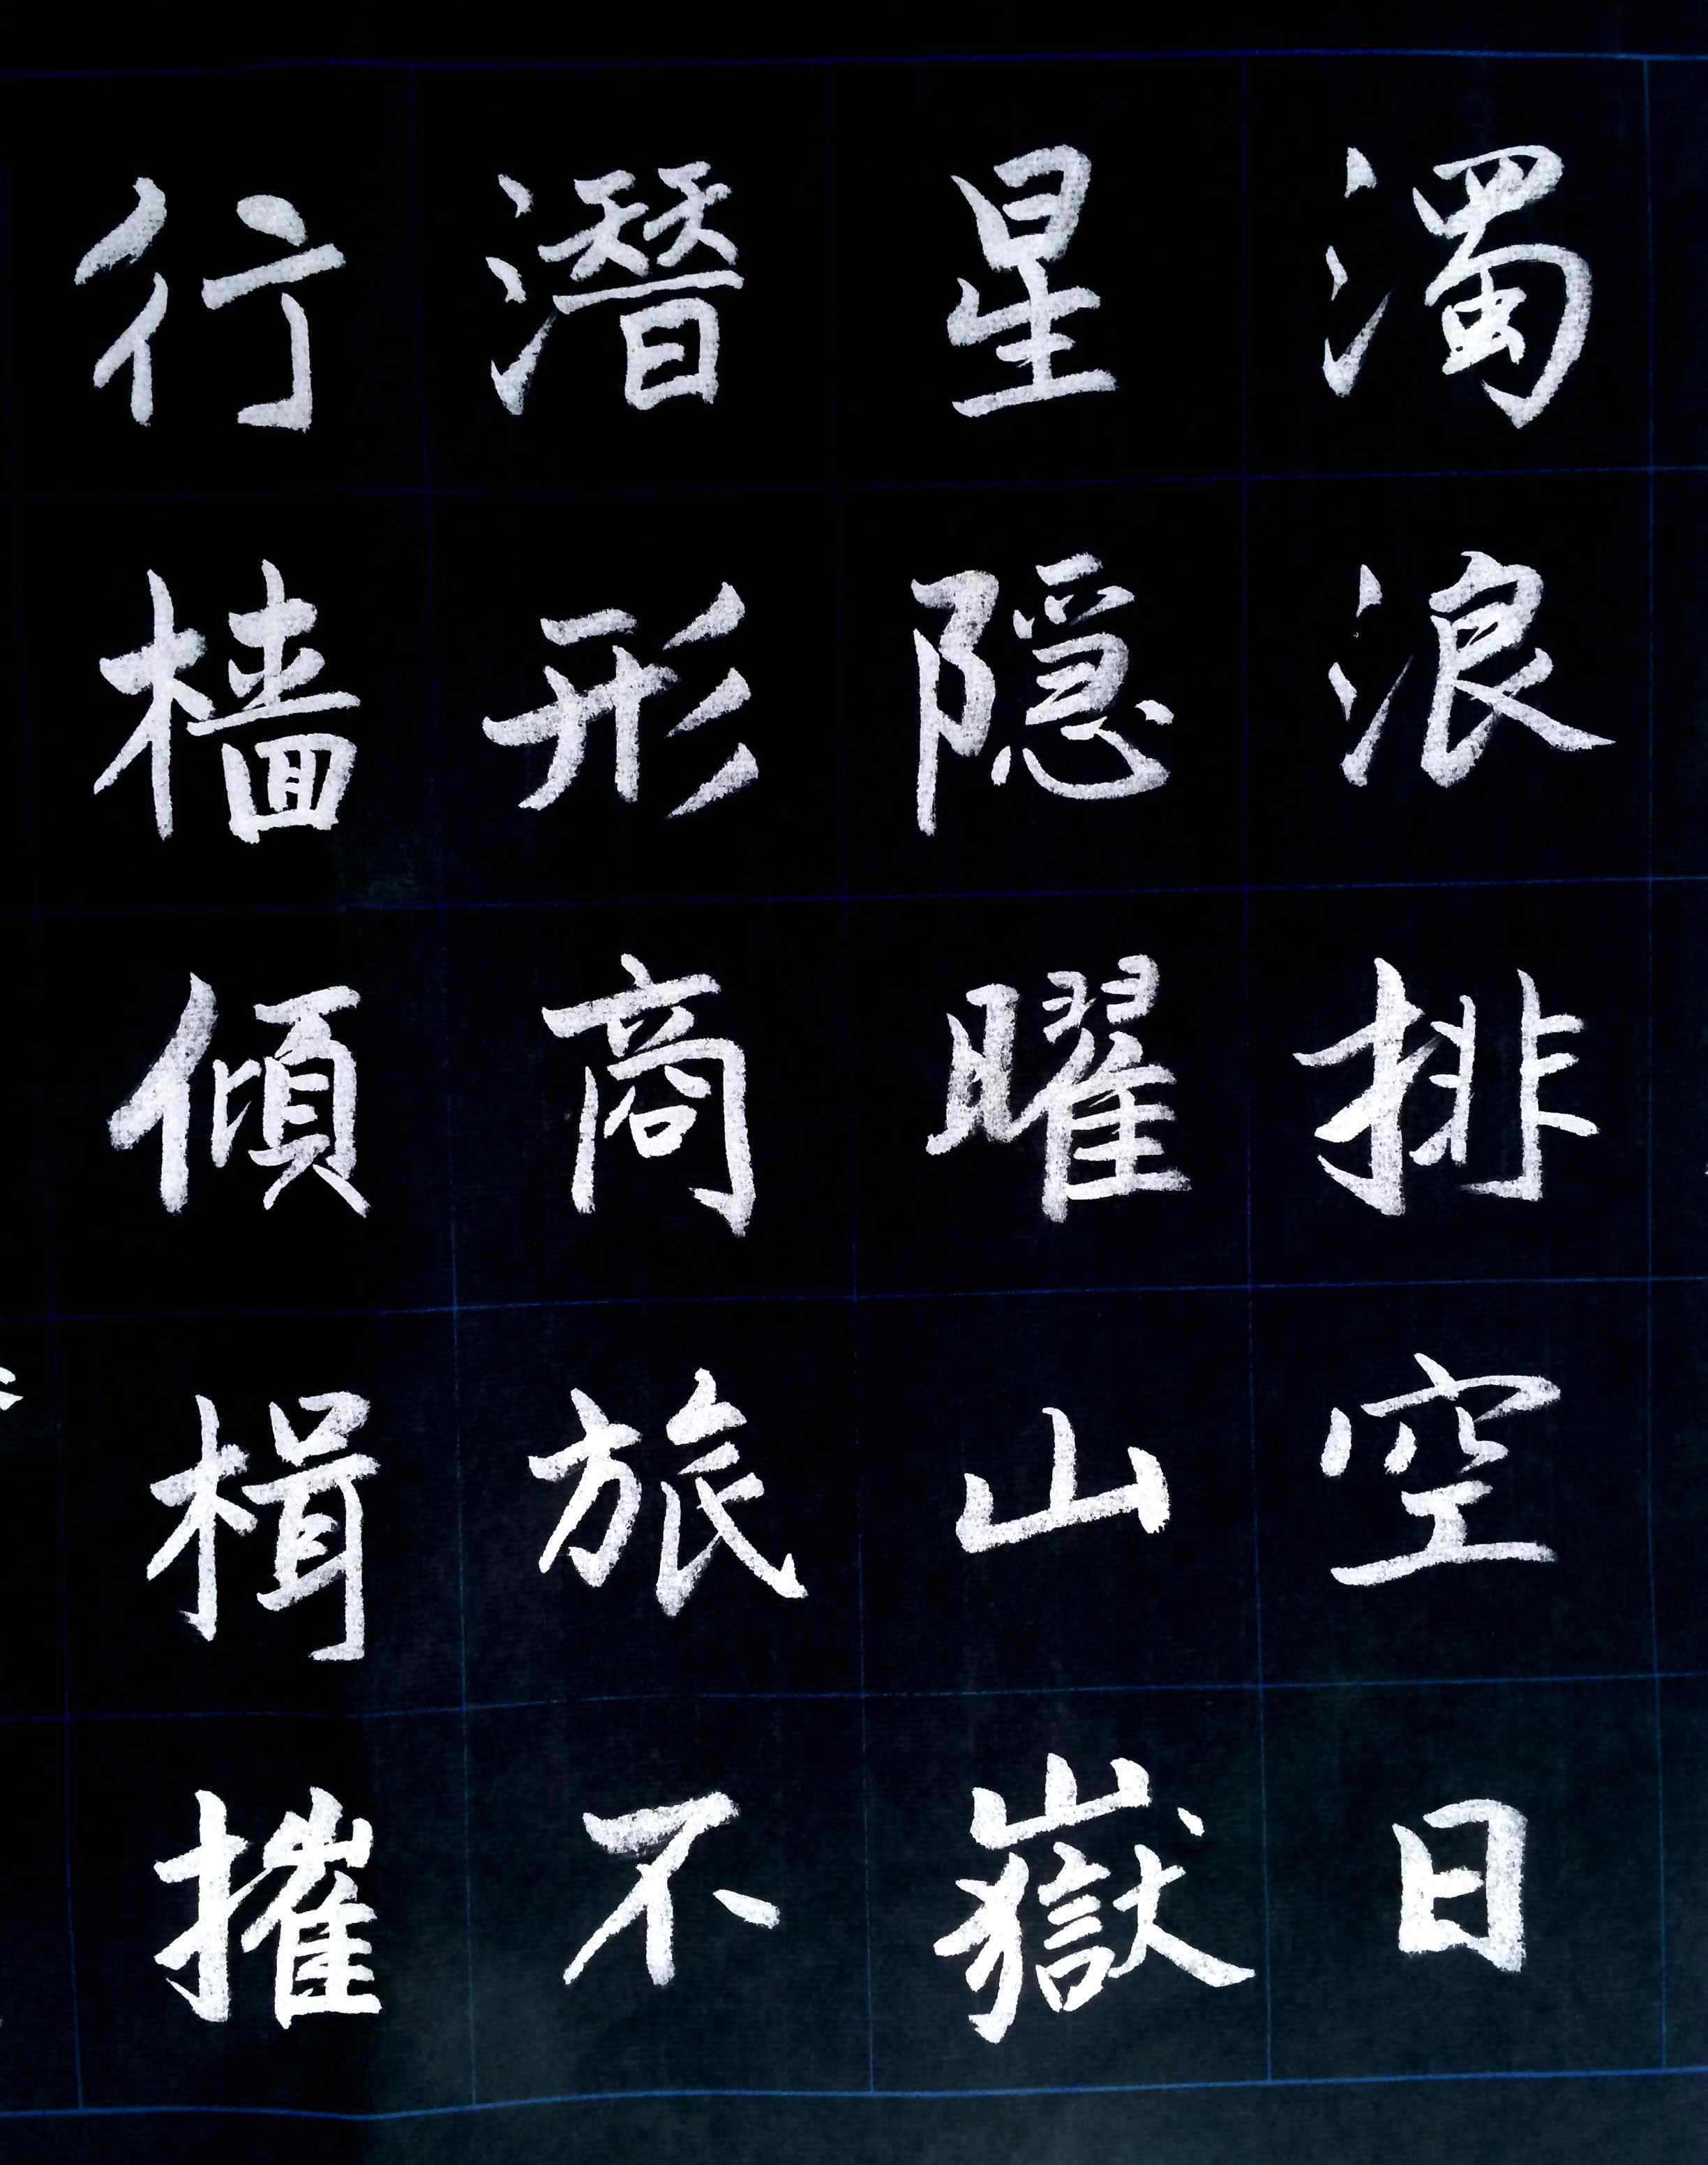 濁浪排空日
星隱曜山嶽
潛形商旅不
行檣傾楫摧